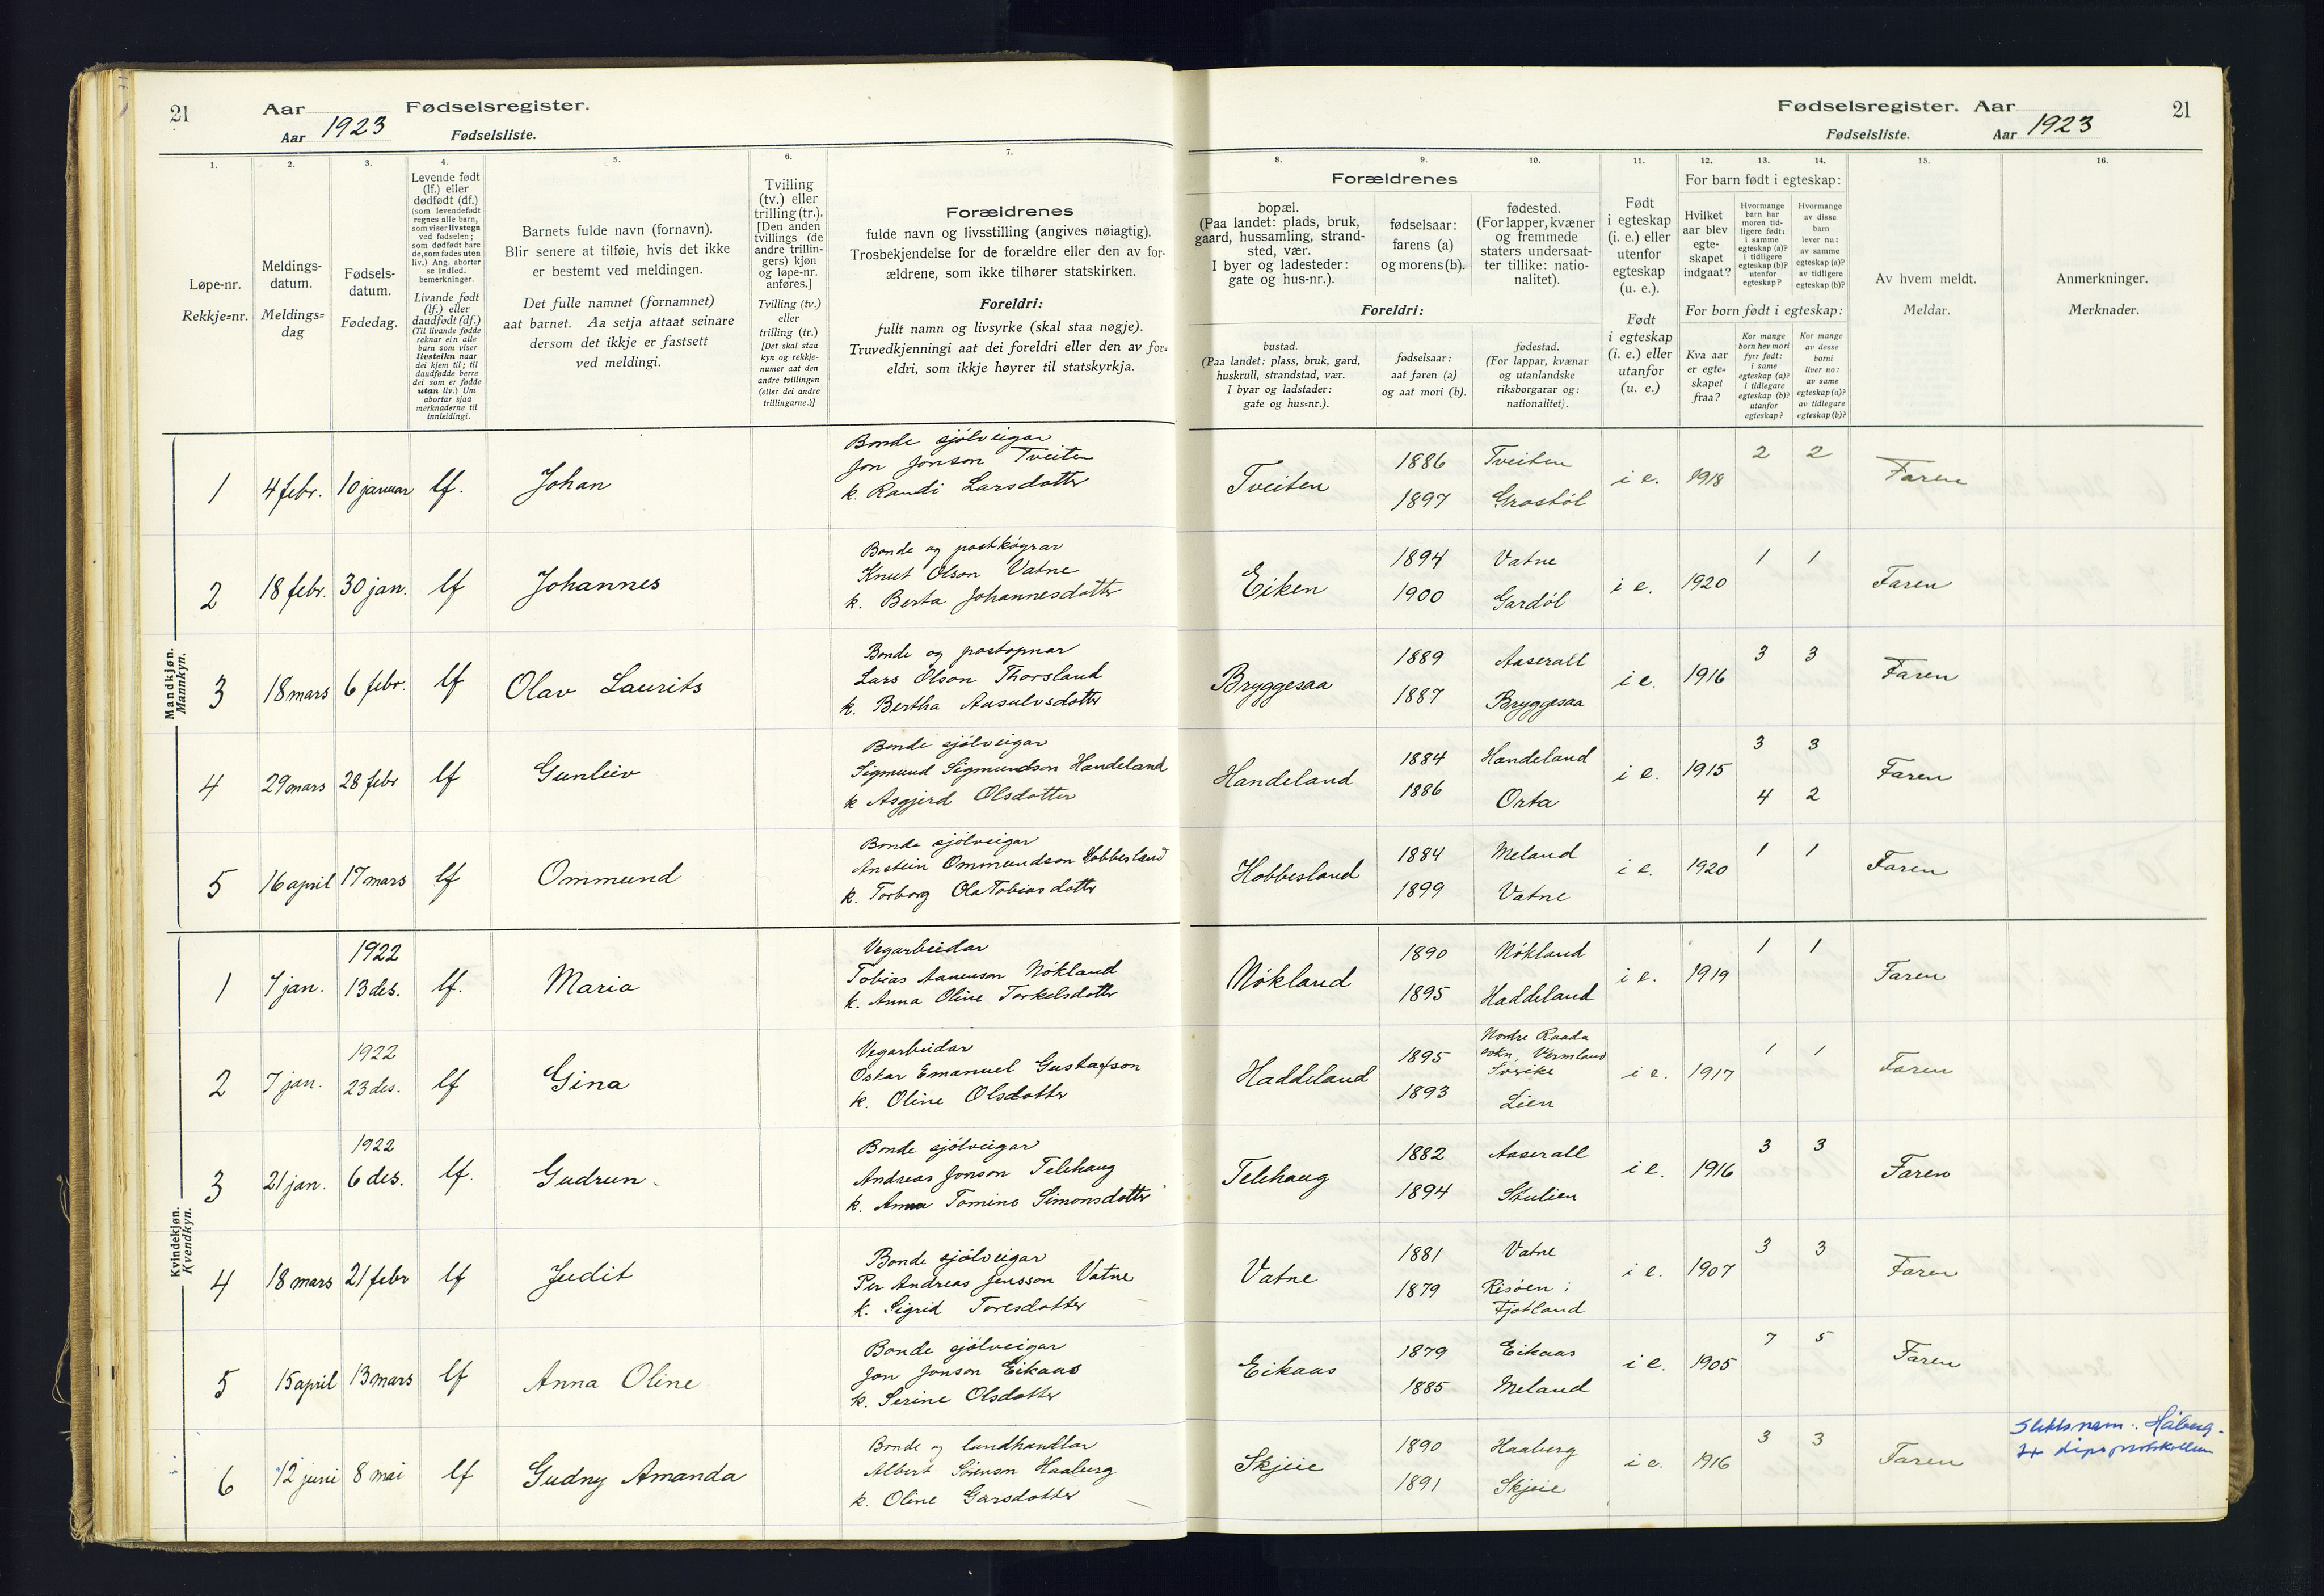 21
Aar 
Fødselsregister.
Aar 1923
Fødselsliste.
1.
2.
3.
4.
5.
6.
7.
Løpe-nr.
Rekkje=nr.
Meldings-
datum.
Meldings=
dag
Fødsels-
datum.
Fødedag.
Levende født
(lf.) eller
dødfødt (df.)
(som levendefødt
regnes alle barn,
som viser livstegn
ved fødselen;
som dødfødt bare
de, som fødes uten
liv.) Ang. aborter
se indled.
bemerkninger.
Livande født
(lf.) eller
daudfødt (df.)
(Til livande fødde
reknar ein alle
barn som viser
livsteikn naar
dei kjem til; til
daudfødde berre
dei som er fødde
utan liv.) Um
abortar sjaa
merknaderne til
innleidingi.
Barnets fulde navn (fornavn).
Blir senere at tilføie, hvis det ikke
er bestemt ved meldingen.
Det fulle namnet (fornamnet)
aat barnet. Aa setja attaat seinare
dersom det ikkje er fastsett
ved meldingi.
Tvilling
(tv.) eller
trilling (tr.).
[Den anden
tvillings (de
andre trillin-
gers) kjøn
og løpe-nr.
anføres.]
Tvilling (tv.)
eller
trilling (tr.)
[Det skal staa
kyn og rekkje-
numer aat den
andre tvillingen
(eller dei andre
trillingarne.)]
Forældrenes
fulde navn og livsstilling (angives nøiagtig).
Trosbekjendelse for de forældre eller den av for-
ældrene, som ikke tilhører statskirken.
Foreldri:
fullt namn og livsyrke (skal staa nøgje).
Truvedkjenningi aat dei foreldri eller den av for=
eldri, som ikkje høyrer til statskyrkja.
Mandkjøn.
Mannkyn.
1 4 febr. 10 januar lf. Johan
Bonde sjölveigar
Jon Jonson Tveiten
k. Randi Larsdotter
2 18 febr. 30 jan. lf Johannes
Bonde og postköyrar
Knut Olson Vatne
k. Berta Johannesdotter
3 18 mars 6 febr. lf Olav Laurits
Bonde og postopnar
Lars Olson Thorsland
k. Bertha Aasulvsdotter
4 29 mars 28 febr lf Gunleiv
Bonde sjölveigar
Sigmund Sigmundson Handeland
k Asgjerd Olsdotter
5 16 april 17 mars lf Ommund
Bonde sjölveigar
Anstein Ommundson Hobbesland
k. Torborg Ola Tobiasdotter
Kvindekjøn.
Kvendkyn.
1 7 jan. 1922 13 des. lf. Maria
Vegarbeidar
Tobias Aanenson Nökland
k. Anna Oline Torkelsdotter
2 7 jan. 1922 23 des. lf Gina
Vegarbeidar
Oskar Emanuel Gustafson
k. Oline Olsdotter
3 21 jan. 1922 6 des. lf. Gudrun
Bonde sjölveigar
Andreas Jonson Telehaug
k. Anna Tomine Simonsdotter
4 18 mars 21 febr lf Judit
Bonde sjölveigar
Per Andreas Jensson Vatne
k. Sigrid Toresdotter
5 15 april 13 mars lf Anna Oline
Bonde sjölveigar
Jon Jonson Eikaas
k. Serine Olsdotter
6 12 juni 8 mai lf Gudny Amanda
Bonde og landhandlar
Albert Sörenson Haaberg
k. Oline Garsdotter
Fødselsregister. Aar
21
Fødselsliste.
Aar 1923
8.
9.
10.
11.
12.
13.
14.
15.
16.
Forældrenes
bopæl.
(Paa landet: plads, bruk,
gaard, hussamling, strand-
sted, vær.
I byer og ladesteder:
gate og hus-nr.).
fødselsaar:
farens (a)
og morens (b).
fødested.
(For lapper, kvæner
og fremmede
staters undersaat-
ter tillike: natio-
nalitet).
Foreldri:
bustad.
(Paa landet: plass, bruk, gard,
huskrull, strandstad, vær.
I byar og ladstader:
gate og hus=nr.).
fødselsaar:
aat faren (a)
og aat mori (b).
fødestad.
(For lappar, kvænar
og utanlandske
riksborgarar og:
nationalitet).
Født
i egteskap
(i. e.) eller
utenfor
egteskap
(u. e.).
Født
i egteskap
(i. e.) eller
utanfor
(u. e.)
For barn født i egteskap:
Hvilket
aar blev
egte-
skapet
indgaat?
Hvormange
barn har
moren tid-
ligere født:
i samme
egteskap (a)?
i tidligere
egteskap (b)?
utenfor
egteskap?
Hvormange
av disse
barn
lever nu:
av samme
egteskap (a)?
av tidligere
egteskap (b)?
For born født i egteskap:
Kva aar
er egte=
skapet
fraa?
Kor mange
born hev mori
fyrr født:
i same
egteskap (a)?
i tidlegare
egteskap (b)?
utanfor
egteskap?
Kor mange
av desse
borni
liver no:
av same
egteskap (a)?
av tidlegare
egteskap (b)?
Av hvem meldt.
Meldar.
Anmerkninger.
Merknader.
Tveiten 1886 Tveiten i e. 1918 2 2 Faren
1897 Grostöl
Eiken 1894 Vatne i e. 1920 1 1 Faren
1900 Gardöl
Bryggesaa 1889 Aaserall i e. 1916 3 3 Faren
1887 Bryggesaa
Handeland 1884 Handeland i e. 1915 3 3 Faren
1886 Orta 4 2
Hobbesland 1884 Meland i e. 1920 1 1 Faren
1899 Vatne
Nökland 1890 Nökland i e. 1919 1 1 Faren
1895 Haddeland
Haddeland 1895 Nordre Raada
sokn, Vermland
Sverike i e. 1917 1 1 Faren
1893 Lien
Telehaug 1882 Aaserall i e. 1916 3 3 Faren
1894 Stulien
Vatne 1881 Vatne i e. 1907 3 3 Faren
1879 Risöen i
Fjotland
Eikaas 1879 Eikaas i e. 1905 7 5 Faren
1885 Meland
Skjeie 1890 Haaberg i e. 1916 3 3 Faren
1891 Skjeie
Slektsnam: Håberg.